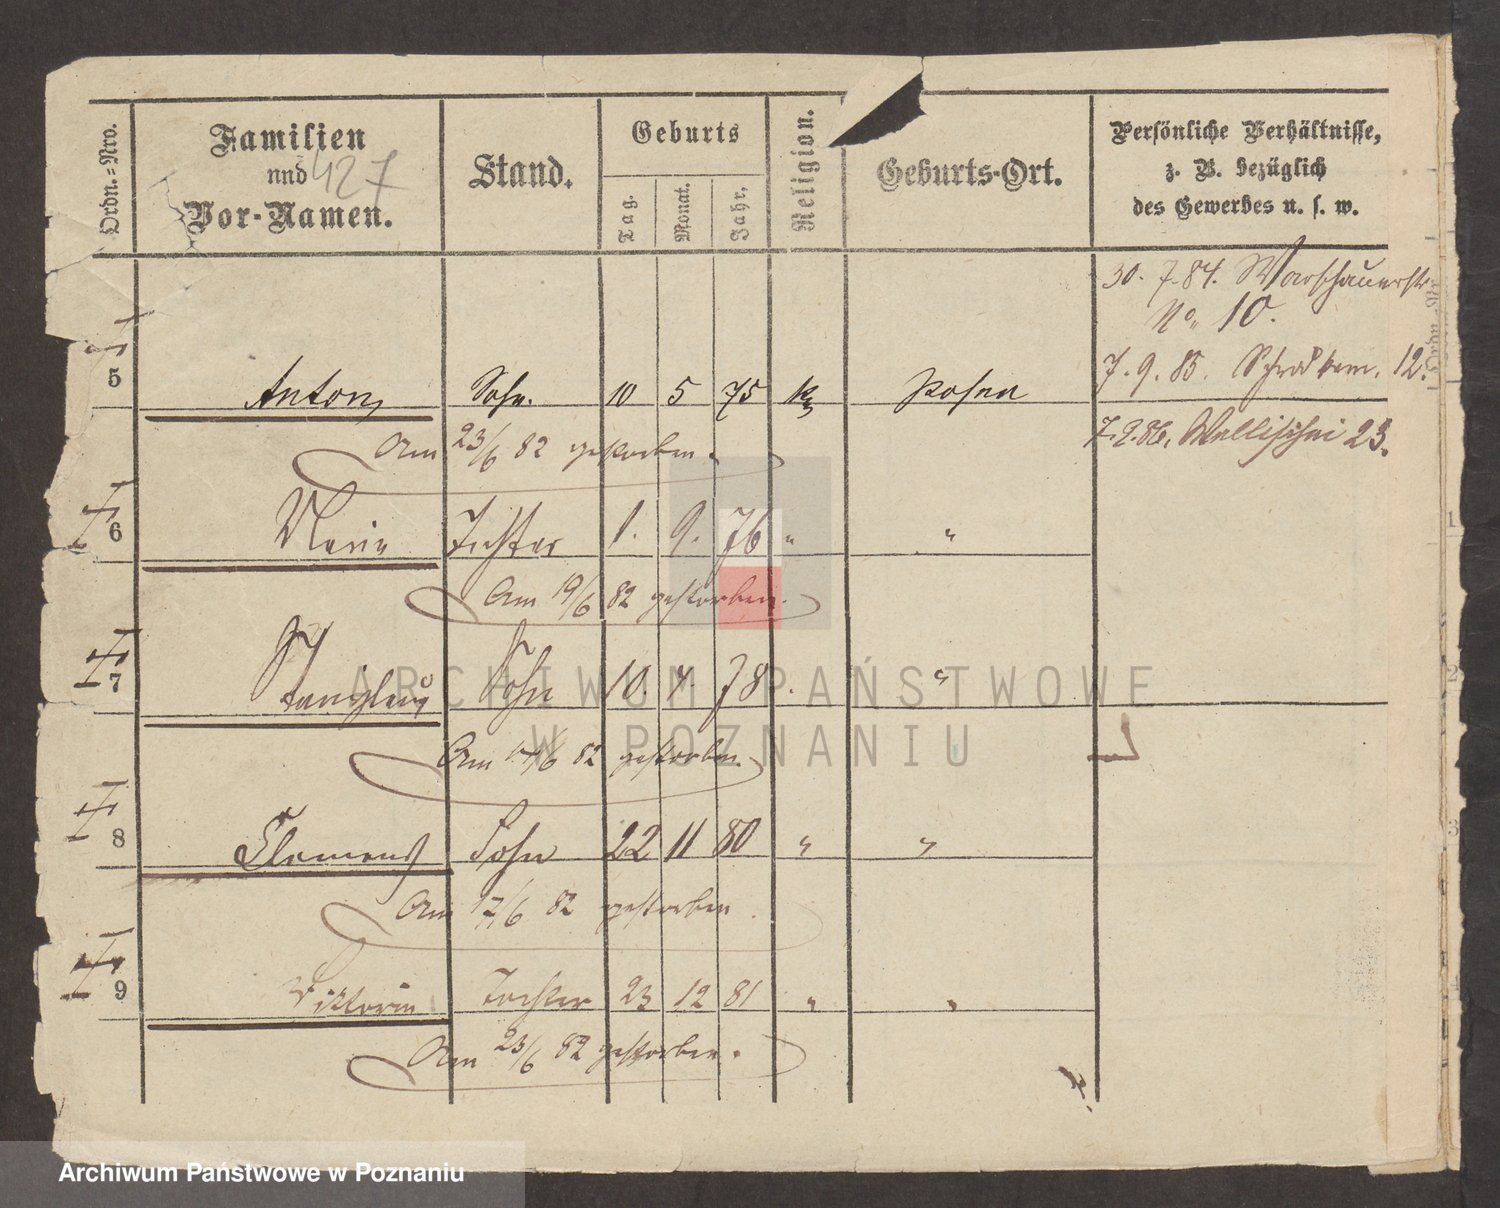 Ordn.-Nro.
Familien
und 427
Vor-Namen.
Stand.
Geburts
Tag.
Monat.
Jahr.
Religion.
Geburts-Ort.
Persönliche Verhältnisse,
z. B. bezüglich
des Gewerbes u. s. w.
30. 7. 84. Warschauerstr.
No. 10.
7. 9. 85. 12.
7. 2. 86. Wallischei 23.
5 Anton Sohn. 10 5 75 k Posen
Am 23/6 82 gestorben.
6 Marie Tochter 1. 9. 76 " "
Am 19/6 82 gestorben.
7 Stanislaus Sohn 10. 4. 78 . "
Am 14/6 82 gestorben.
8 Clemens Sohn 22 11 80 " "
Am 17/6 82 gestorben
9 Viktoria Tochter 23 12 81 " "
Am 23/6 82 gestorben.
ARCHIWUM PAŃSTWOWE
W POZNANIU
Archiwum Państwowe w Poznaniu